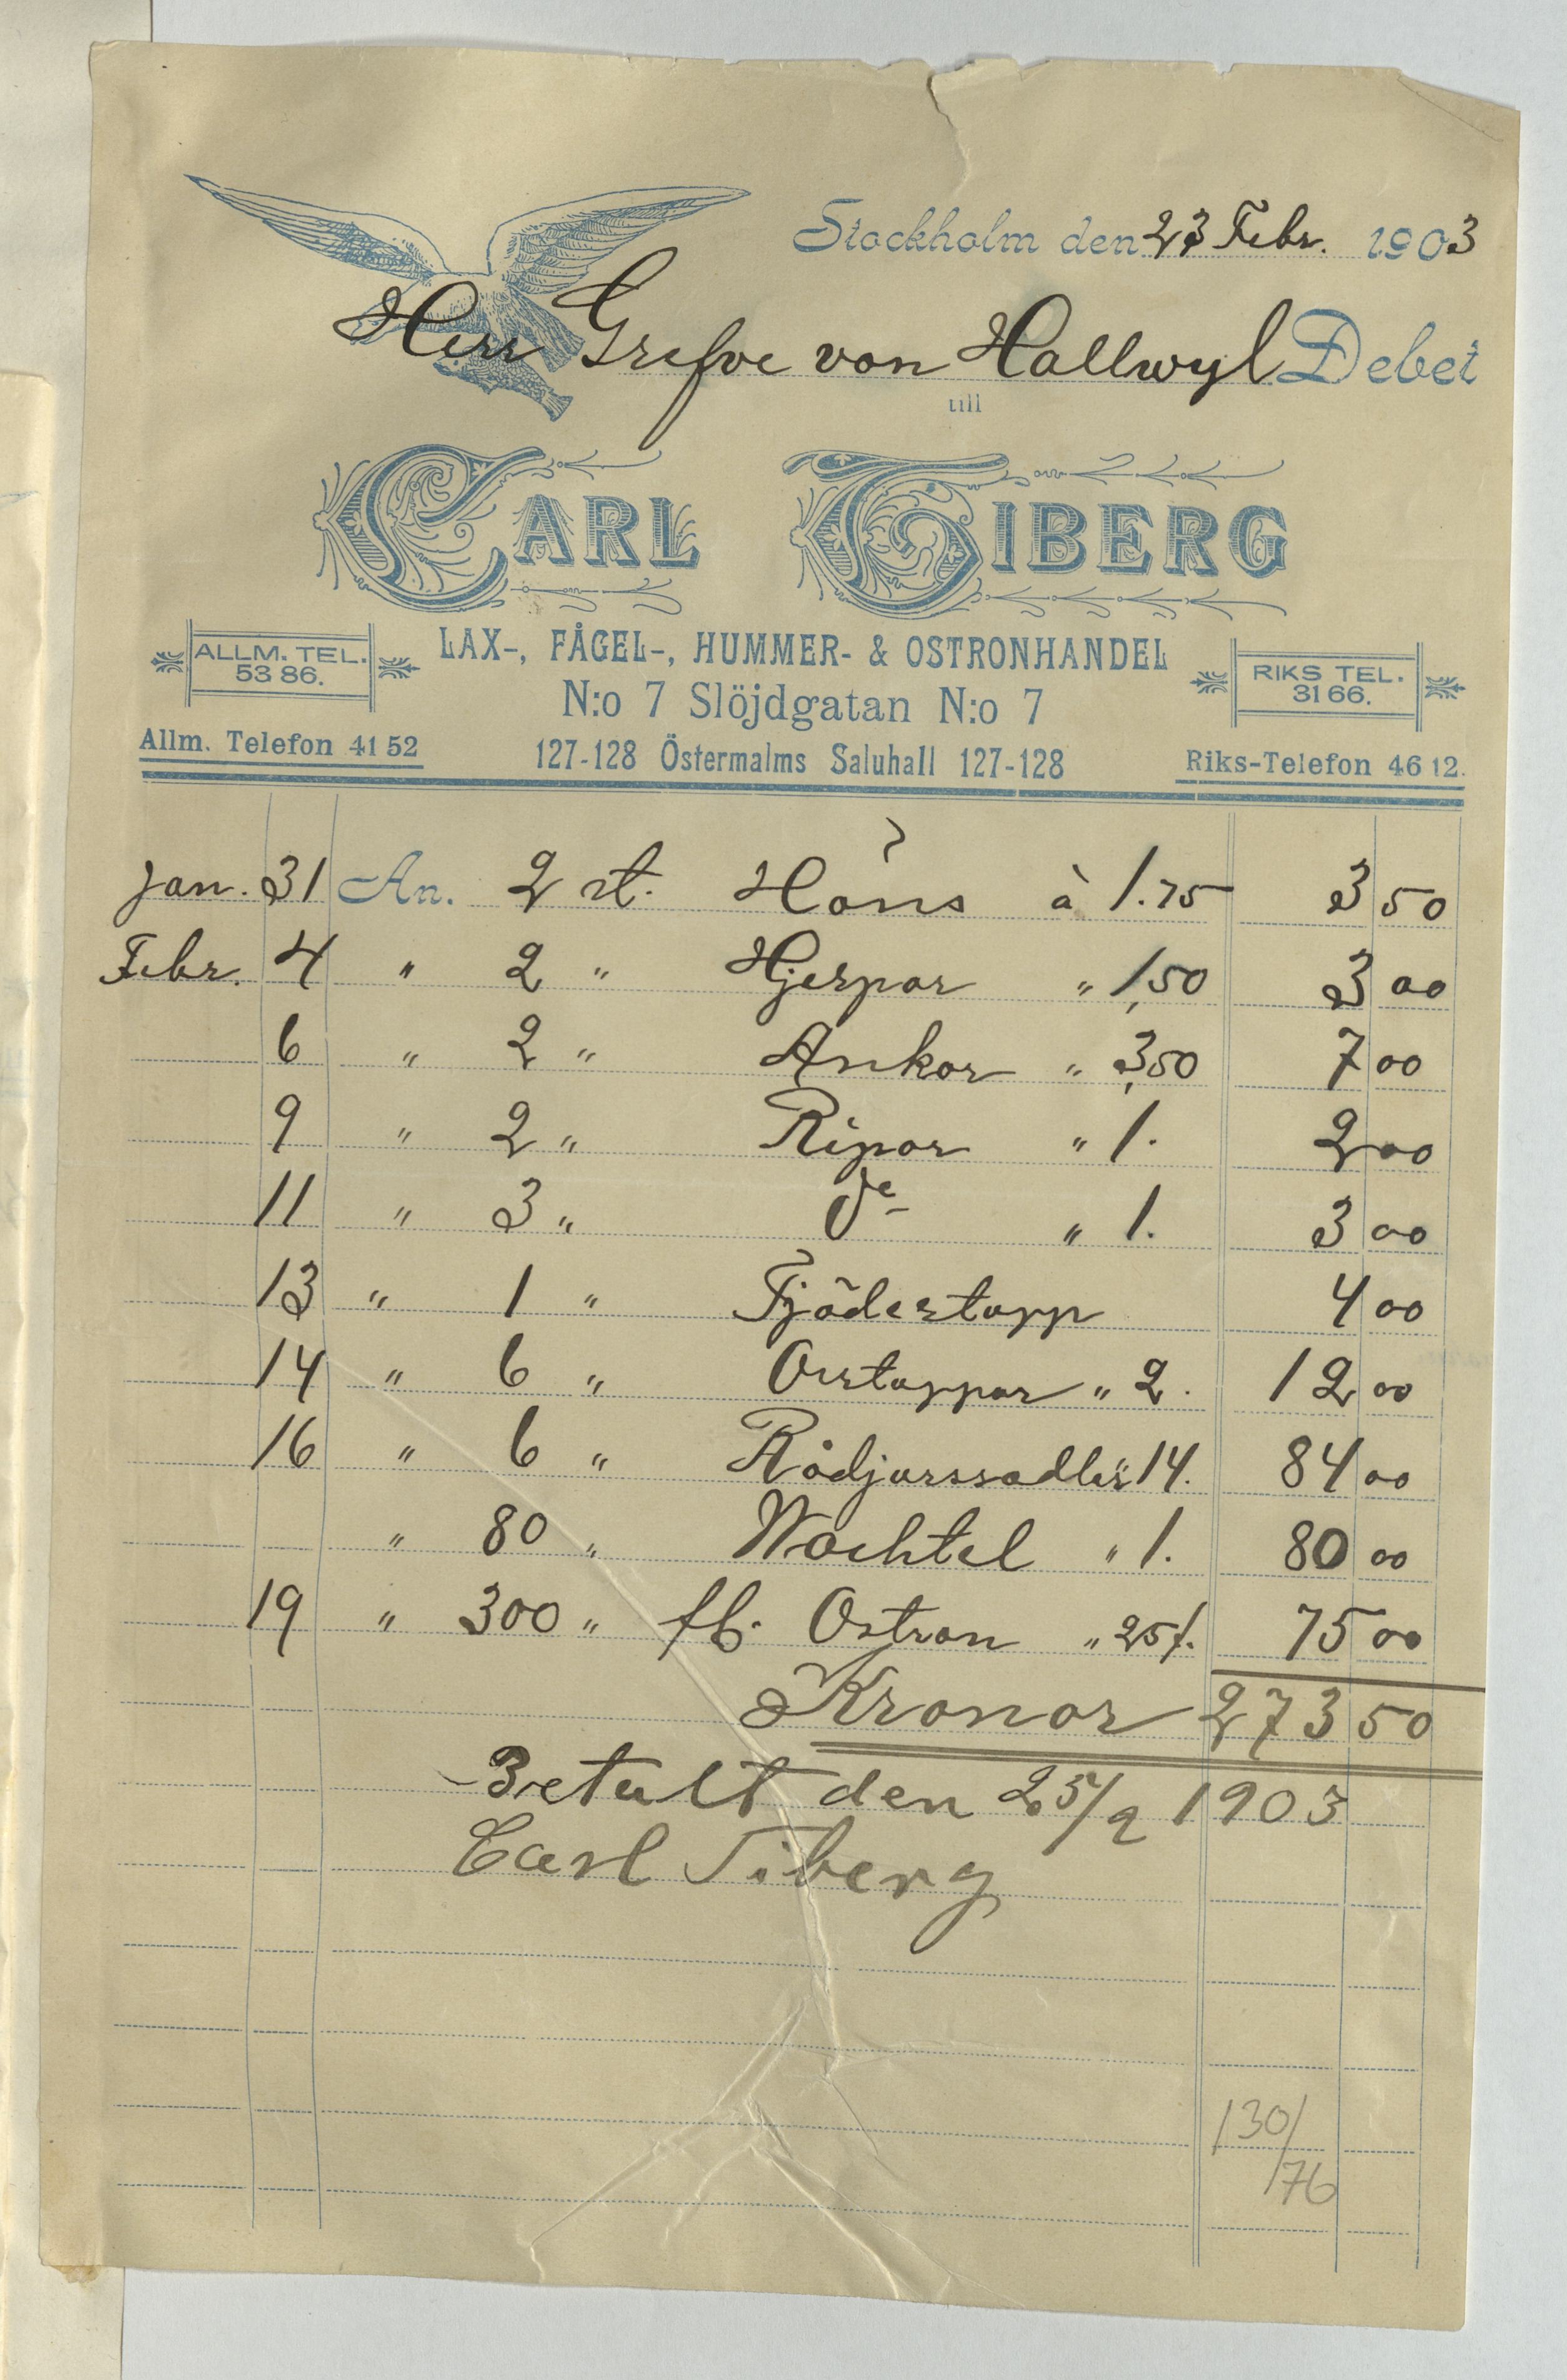 Stockholm den 23 Febr. 1903
Herr Grefve von Hallwyl Debet
till
CARL TIBERG
LAX-, FÅGEL-, HUMMER- & OSTRONHANDEL
ALLM. TEL. 53 86.
RIKS TEL. 31 66.
N:o 7 Slöjdgatan N:o 7
Allm. Telefon 41 52
127-128 Östermalms Saluhall 127-128
Riks-Telefon 46 12.
Jan. 31 An. 2 st. Höns à 1.75 3 50
Febr. 4 " 2 " Hjerpar " 1,50 3 00
6 " 2 " Ankor " 3,50 7 00
9 " 2 " Ripor " 1. 2 00
11 " 3 " " 1. 3 00
13 " 1 " Tjädertupp 4 00
14 " 6 " Orrtuppar " 2. 12 00
16 " 6 " Rådjurssadlar " 14. 84 00
" 80 " Wachtel " 1. 80 00
19 " 300 " fl. Ostron " 25/. 75 00
Kronor 273 50
Betalt den 25/2 1903
Carl Tiberg
130/
76